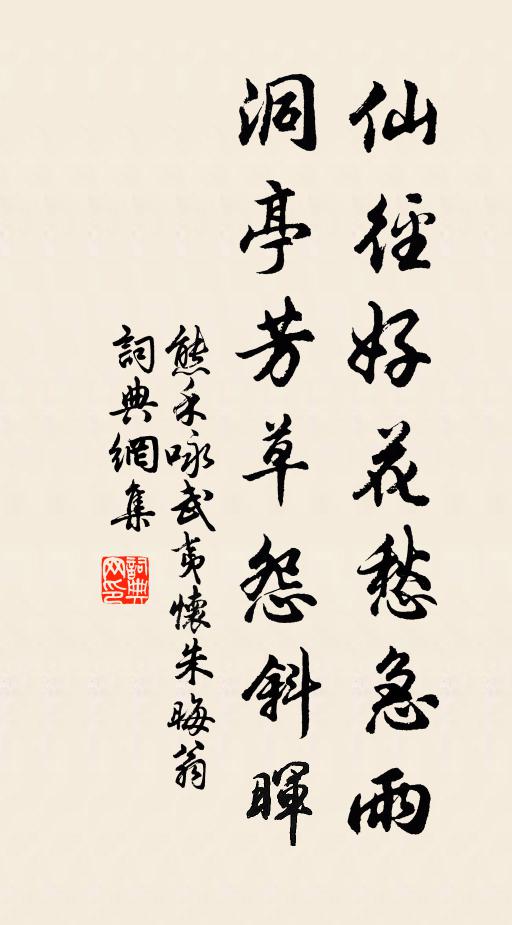 仙徑好花愁急雨
洞亭芳草怨斜暉
熊禾咏武夷懷朱晦翁
詞典網集
詞典网印